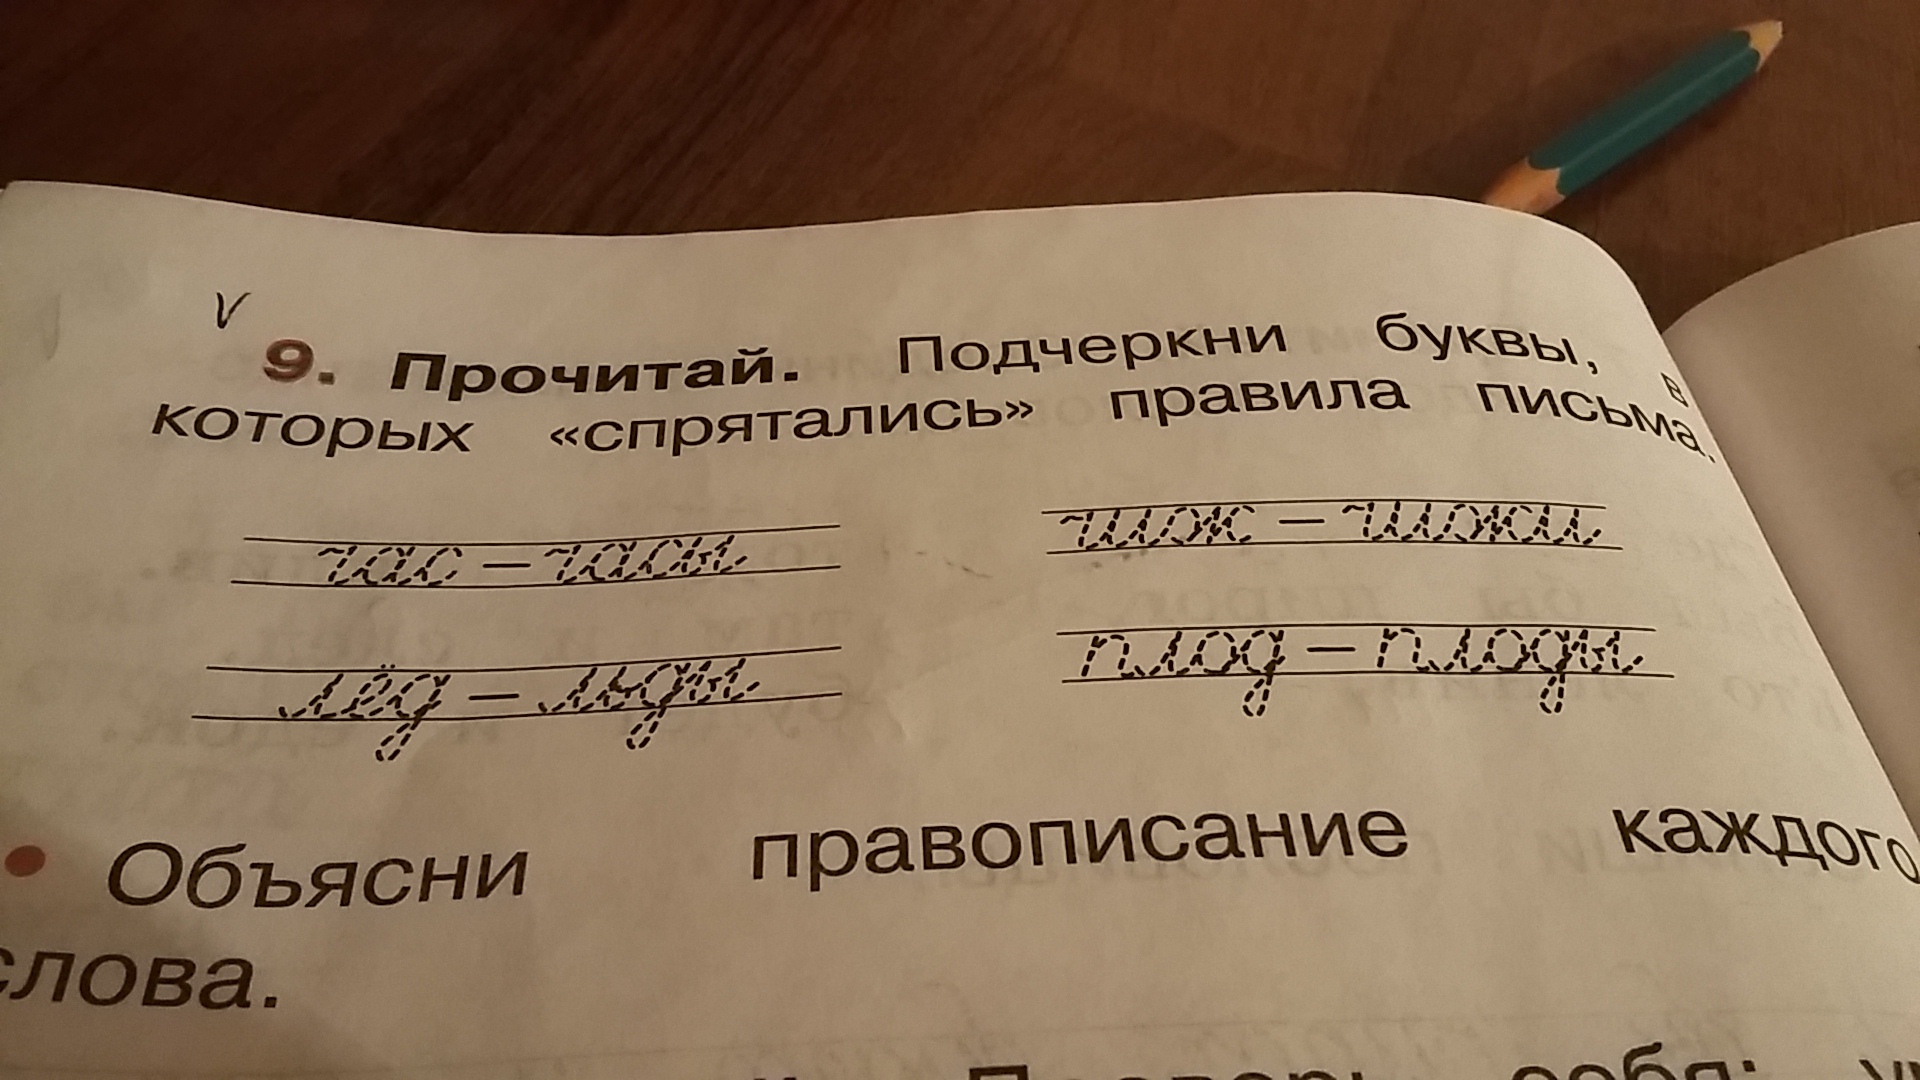 9. Прочитай. Подчеркни буквы, в
которых «спрятались» правила письма.
час – часы
чиж – чижи
лёд – льды
плод – плоды
• Объясни правописание каждого
слова.